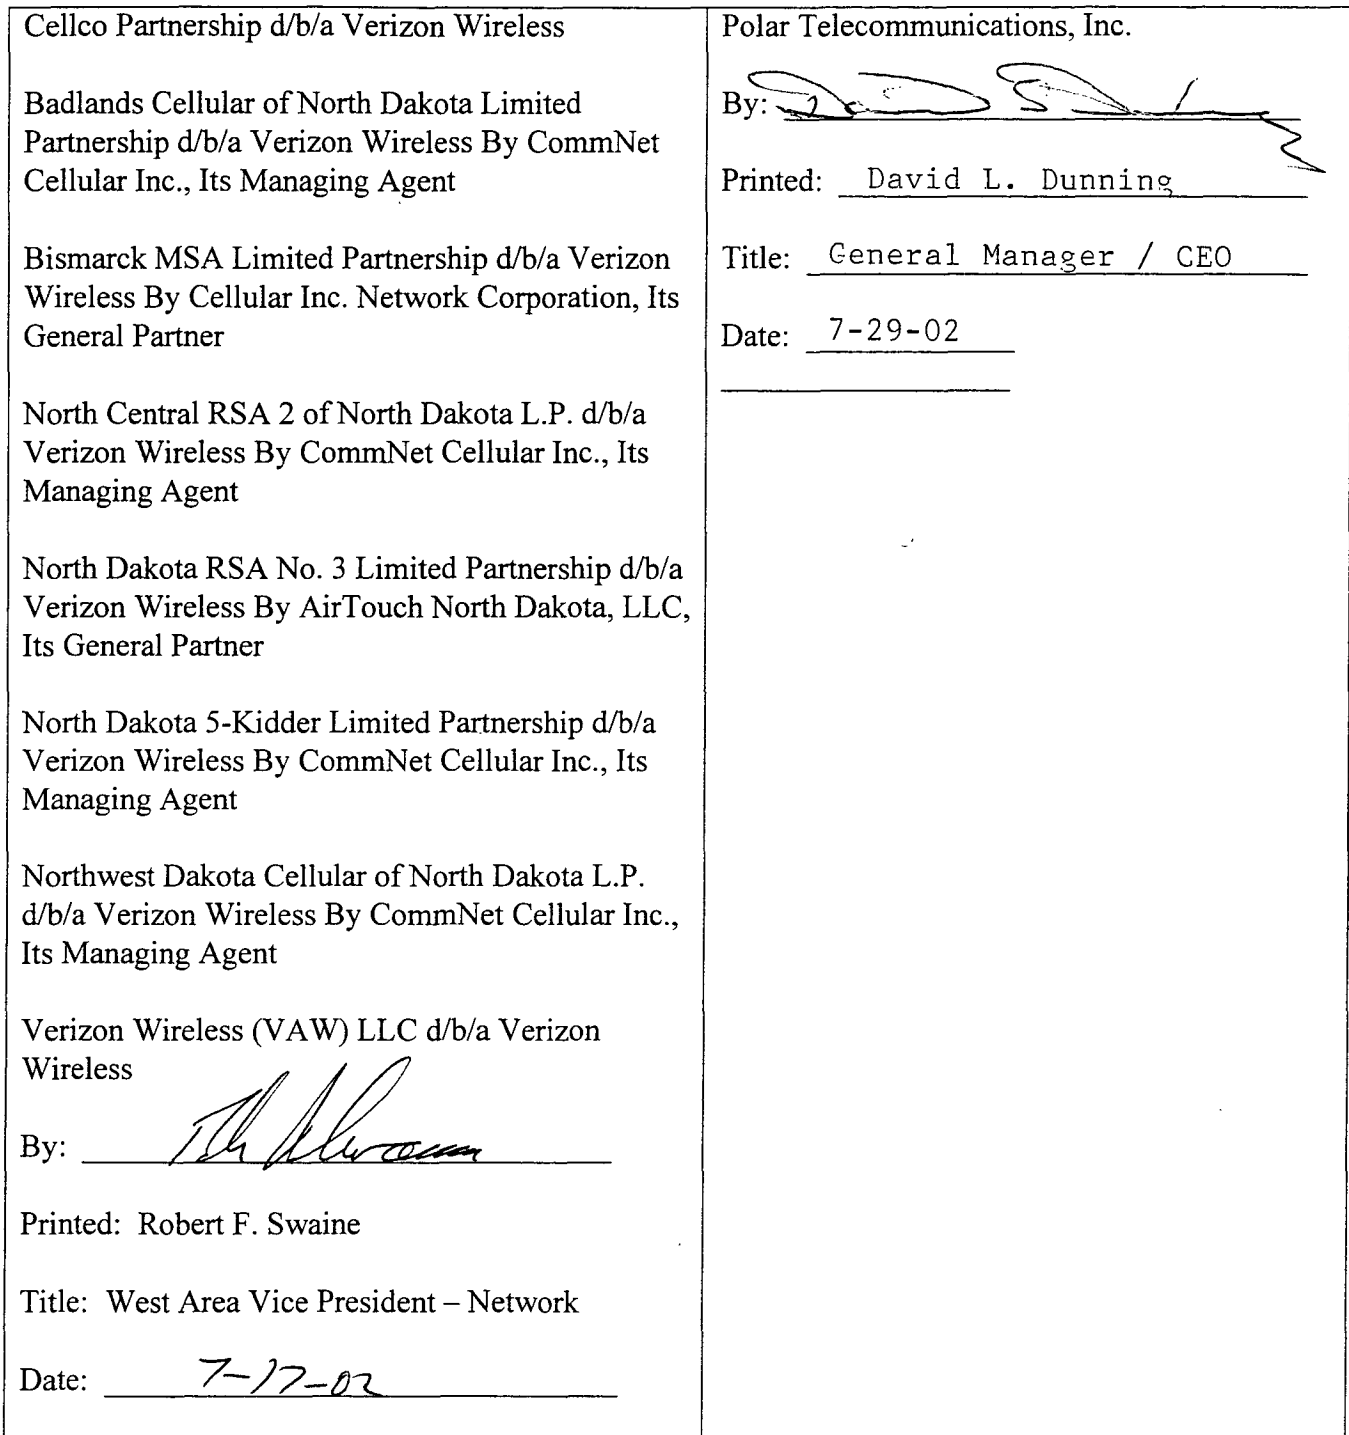 Cellco Partnership d/b/a Verizon Wireless
Badlands Cellular of North Dakota Limited
Partnership d/b/a Verizon Wireless By CommNet
Cellular Inc., Its Managing Agent
Bismarck MSA Limited Partnership d/b/a Verizon
Wireless By Cellular Inc. Network Corporation, Its
General Partner
North Central RSA 2 of North Dakota L.P. d/b/a
Verizon Wireless By CommNet Cellular Inc., Its
Managing Agent
North Dakota RSA No. 3 Limited Partnership d/b/a
Verizon Wireless By AirTouch North Dakota, LLC,
Its General Partner
North Dakota 5-Kidder Limited Partnership d/b/a
Verizon Wireless By CommNet Cellular Inc., Its
Managing Agent
Northwest Dakota Cellular of North Dakota L.P.
d/b/a Verizon Wireless By CommNet Cellular Inc.,
Its Managing Agent
Verizon Wireless (VAW) LLC d/b/a Verizon
Wireless
By:
Printed: Robert F. Swaine
Title: West Area Vice President – Network
Date: 7-17-02
Polar Telecommunications, Inc.
By:
Printed: David L. Dunning
Title: General Manager / CEO
Date: 7-29-02